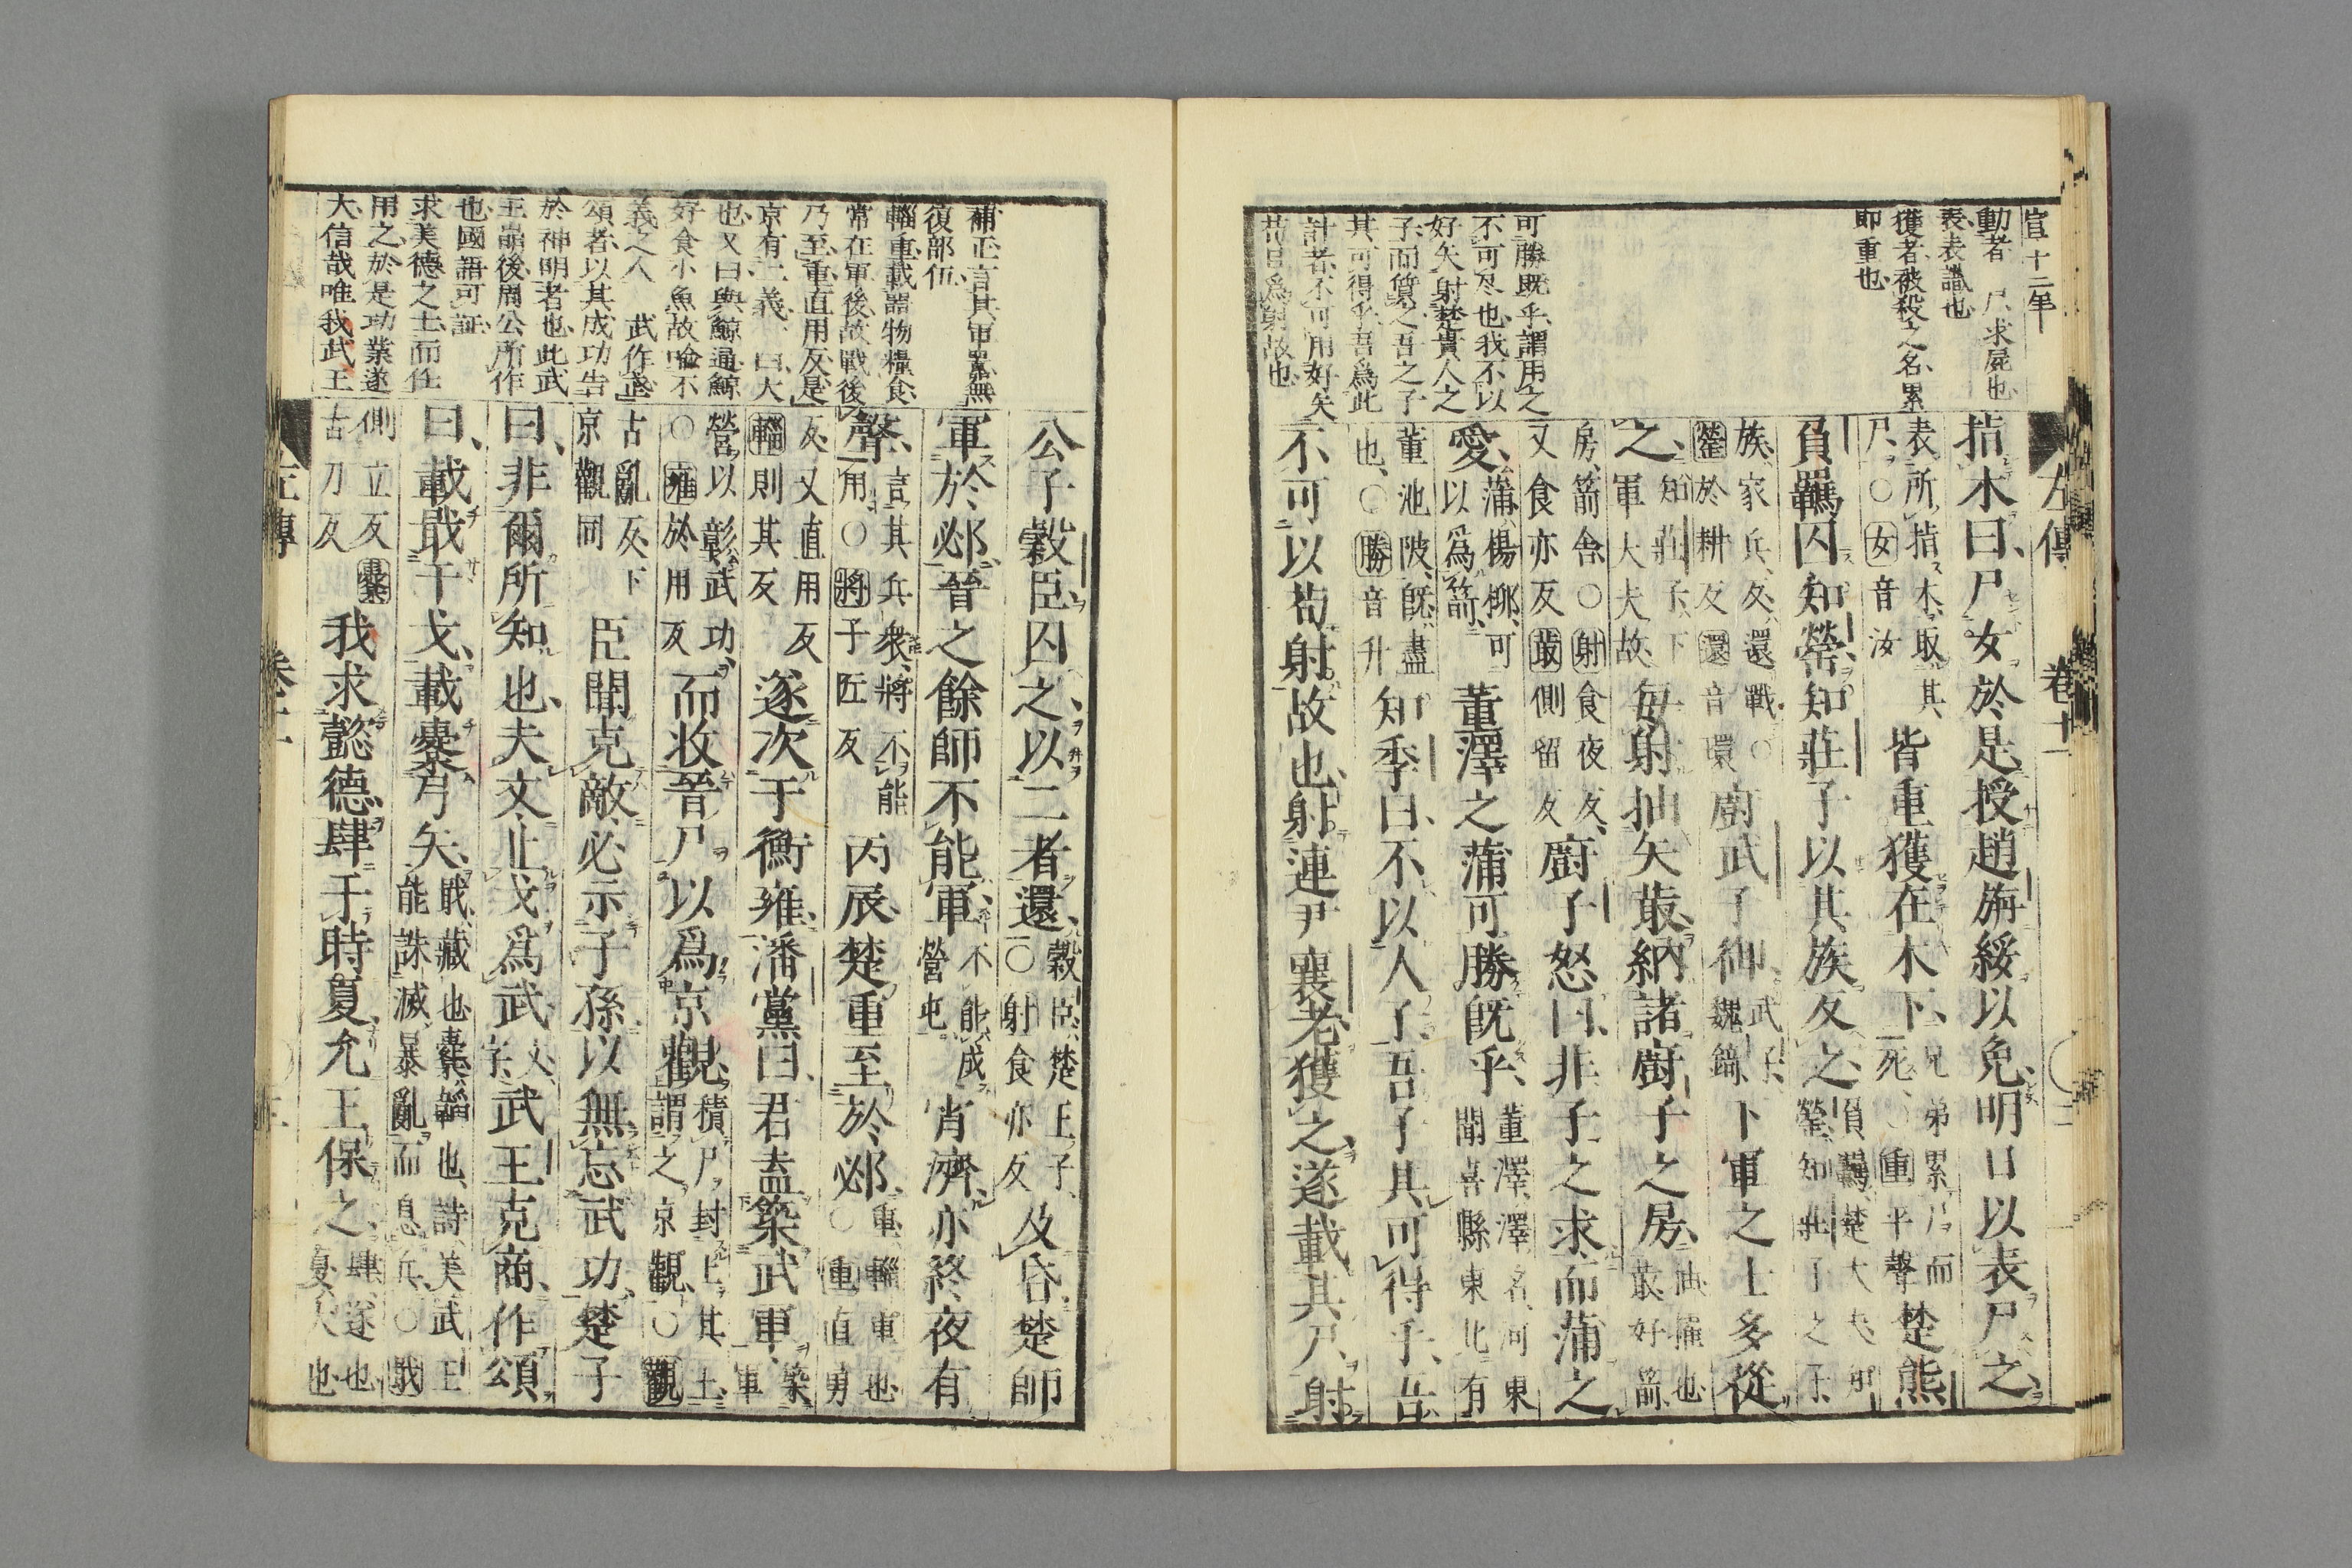 左傳 卷十一
宣十二年
動者 尸求屍也
表表識也
獲者被殺之名累
即重也
可勝既乎謂用之
不可尽也我不以
好矢射楚貴人之
子而質之吾之子
其可得乎吾爲此
計者不可用好矢
苟且爲射故也
指木曰、尸女於是授趙旃綏以免、明日以表尸之、
表所指木、取其
尸、○女音汝
皆重獲在木下、
兄弟累尸而
死、○重平聲
楚熊
負羈囚知罃、知莊子以其族反之、
負羈、楚大夫、知
罃、知莊子之子、
族、家兵、反、還戰、○
罃於耕反還音環
廚武子御、
武子、
魏錡、
下軍之士多從
之、
知莊子、下
軍大夫故、
每射抽矢菆、納諸廚子之房、
抽、擢也、
菆、好箭、
房、箭舍、○射食夜反、
又食亦反菆側留反
廚子怒曰、非子之求、而蒲之
愛、
蒲、楊柳、可
以爲箭、
董澤之蒲可勝既乎、
董澤、澤名、河東
聞喜縣東北有
董池陂、既、盡
也、○勝音升
知季曰、不以人子、吾子其可得乎、吾
不可以苟射故也、射連尹襄老、獲之、遂載其尸、射
補正言其軍囂無
復部伍
輜重載器物糧食
常在軍後故戰後
乃至重直用反是
京有二義 曰大
也又曰與鯨通鯨
好食小魚故喻不
義之人 武作武
頌者以其成功告
於神明者也此武
王崩後周公所作
也國語可証
求美德之士而任
用之於是功業遂
大信哉唯我武王
公子穀臣、囚之、以二者還、
穀臣、楚王子、
○射食亦反
及昏、楚師
軍於邲、晉之餘師不能軍、
不能成
營屯
宵濟、亦終夜有
聲、
言其兵衆、將不能
用、○將子匠反
丙辰、楚重至於邲、
重、輜重也、
○重直勇
反、又直用反
輜則其反
遂次于衡雍、潘黨曰、君盍築武軍、
築
軍
營以彰武功、
○雍於用反
而收晉尸以爲京觀、
積尸封土其上、
謂之京觀、○觀
古亂反、下
京觀同
臣聞克敵必示子孫、以無忘武功、楚子
曰、非爾所知也、夫文、止戈爲武、
文、
字、
武王克商、作頌
曰、載戢干戈、載櫜弓矢、
戢、藏也、櫜、韜也、詩美武王
能誅滅暴亂而息兵、○戢
側立反櫜
古刀反
我求懿德、肆于時夏、允王保之、
肆、遂也、
夏、大也、
左傳 卷十一